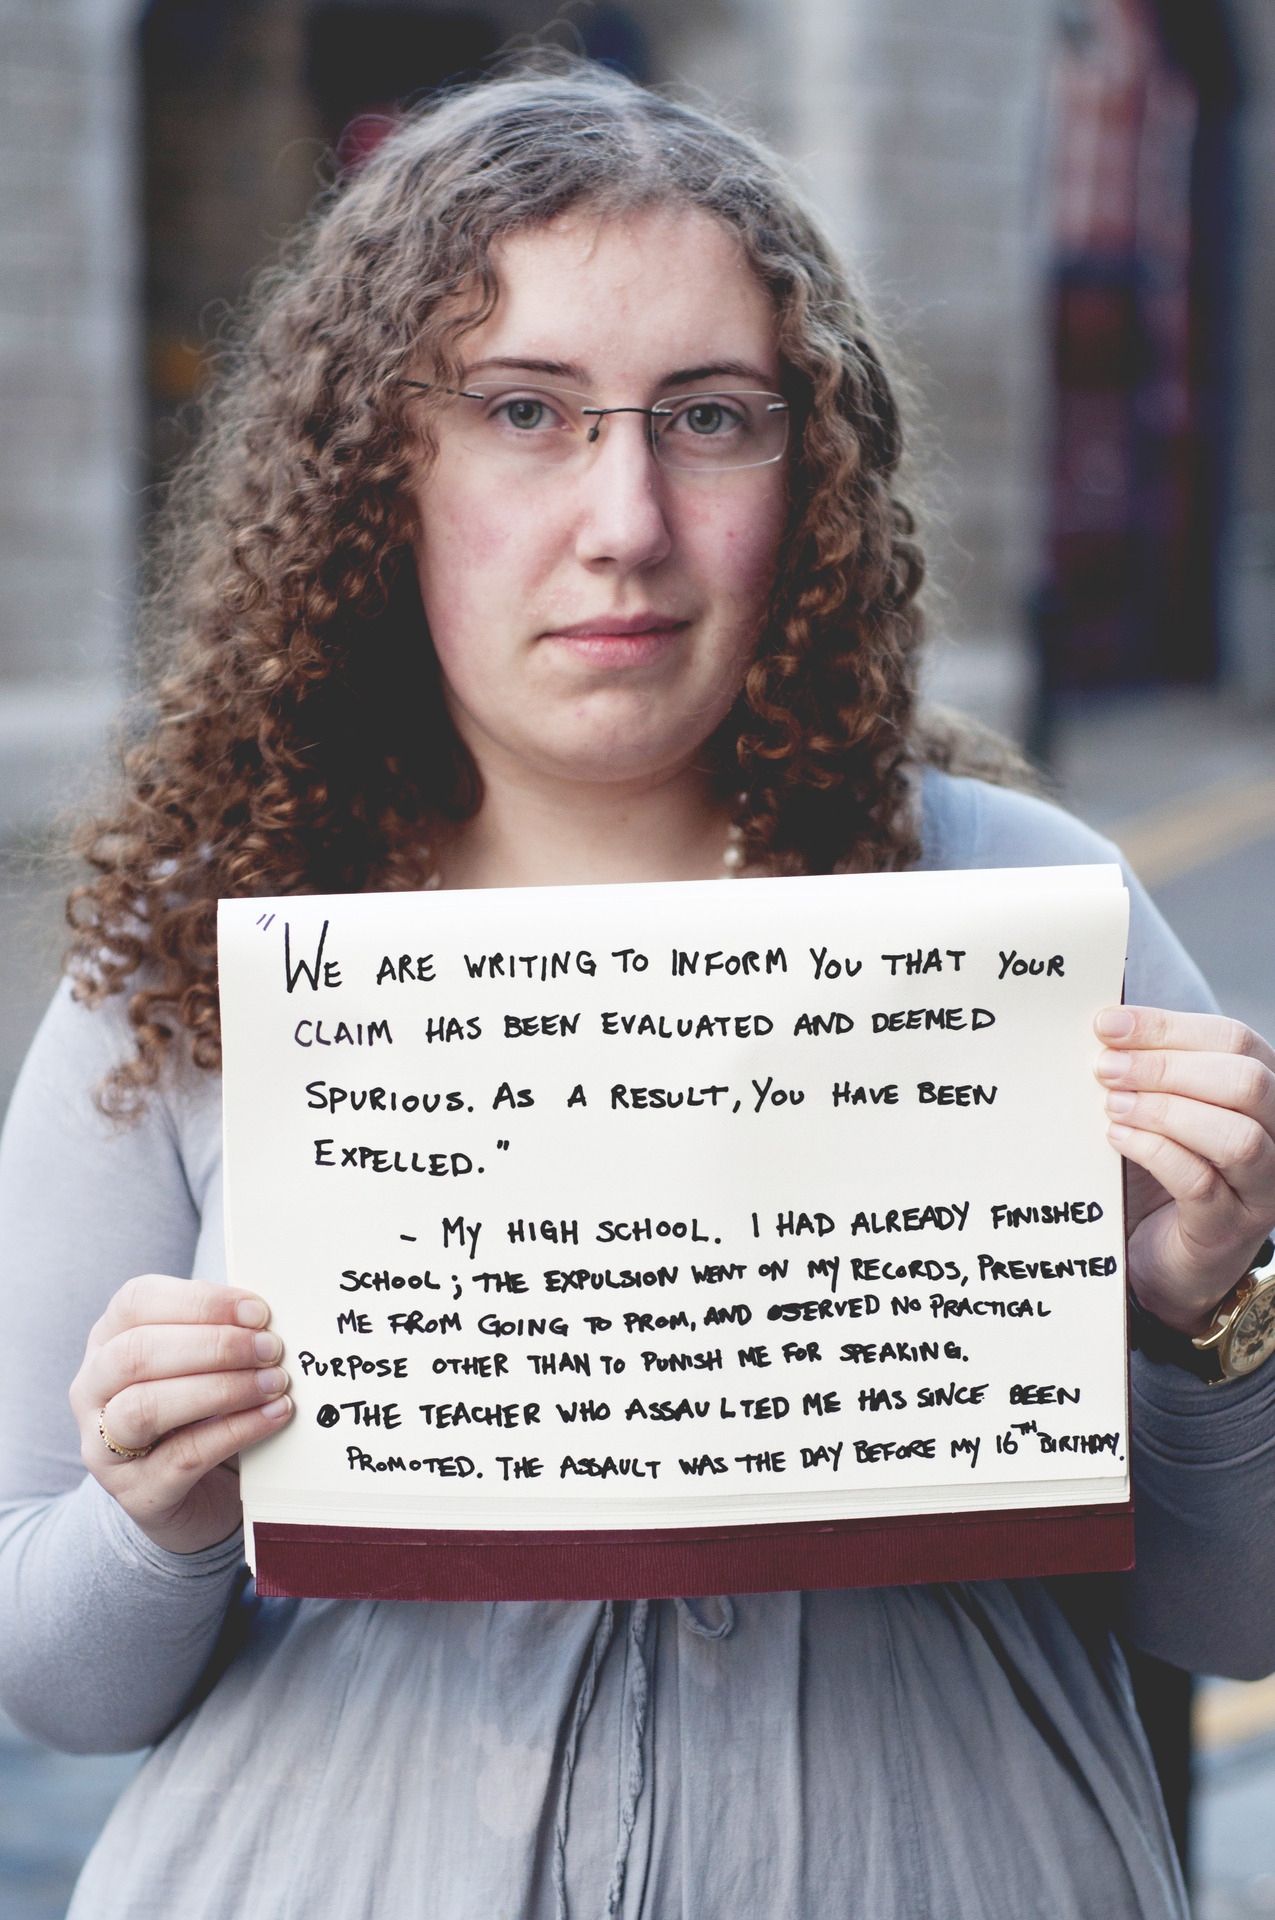 "We ARE WRITING TO INFORM YOU THAT YOUR
CLAIM HAS BEEN EVALUATED AND DEEMED
SPURIOUS. AS A RESULT, YOU HAVE BEEN
EXPELLED."
- MY HIGH SCHOOL. I HAD ALREADY FINISHED
SCHOOL; THE EXPULSION WENT ON MY RECORDS, PREVENTED
ME FROM GOING TO PROM, AND SERVED NO PRACTICAL
PURPOSE OTHER THAN TO PUNISH ME FOR SPEAKING.
THE TEACHER WHO ASSAULTED ME HAS SINCE BEEN
PROMOTED. THE ASSAULT WAS THE DAY BEFORE MY 16TH BIRTHDAY.